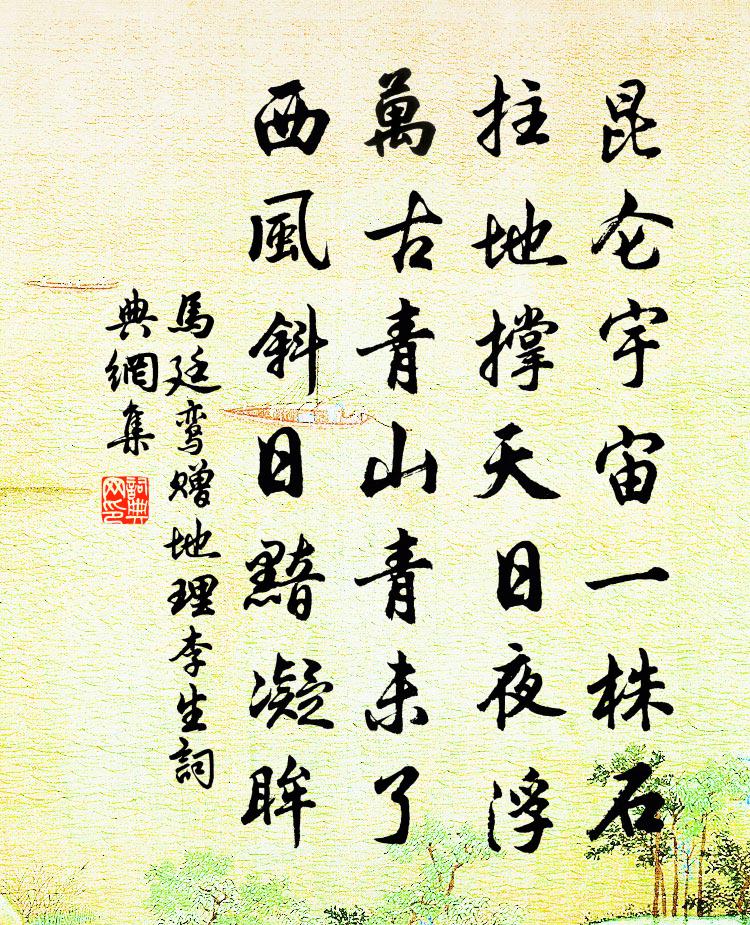 昆仑宇宙一株石
拄地撑天日夜浮
萬古青山青未了
西風斜日黯凝眸
馬廷鸾赠地理李生詞
典網集
詞典
网印